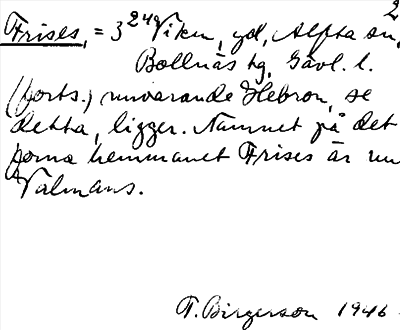 2
Frises, = 3²⁴ Viken, gd, Alfta sn,
Bollnäs tg, Gävl. l.
(forts.) nuvarande Hebron, se
detta, ligger. Namnet på det
forna hemmanet Frises är nu
Valmans.
T. Birgerson 1946